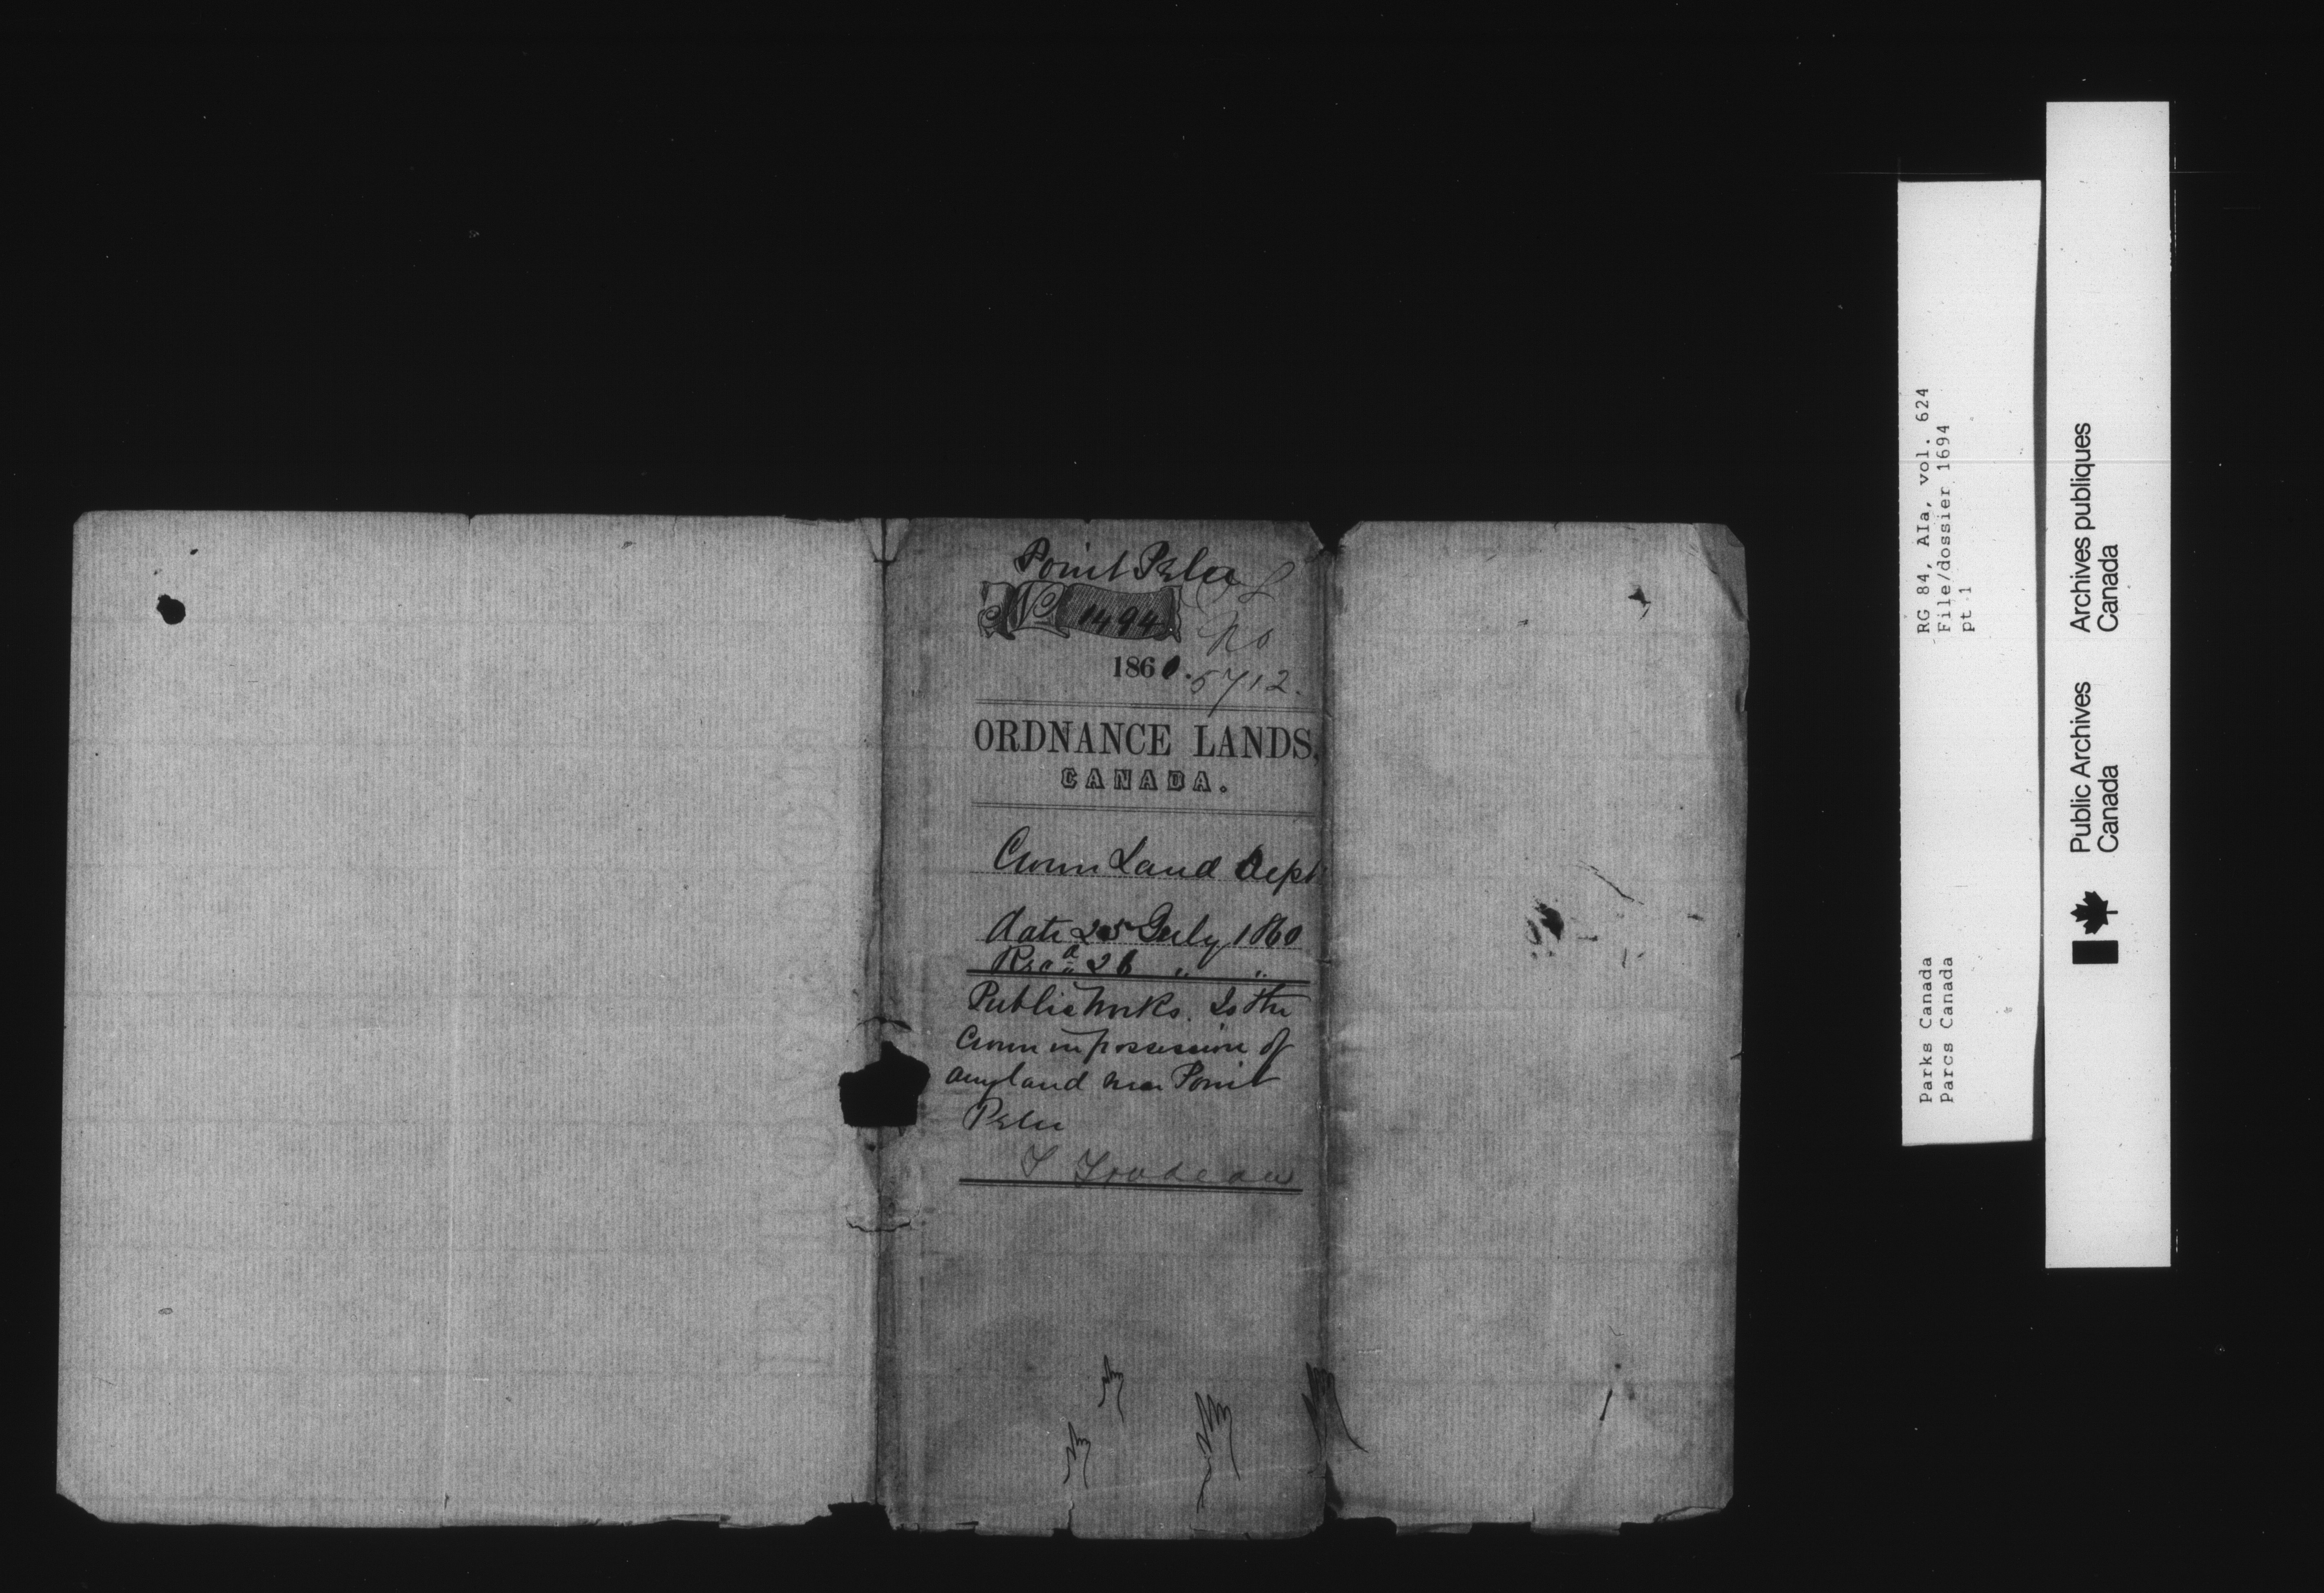 Point Pelee
No 1494
No
1860.
5712.
ORDNANCE LANDS,
CANADA.
Crown Land Dept
date 25 July 1860
Recd 26 " "
Public Works. Is the
Crown in possession of
any land near Point
Pelee
T Trudeau
RG 84, AIa, vol. 624
File/dossier 1694
pt 1
Parks Canada
Parcs Canada
Public Archives
Canada
Archives publiques
Canada